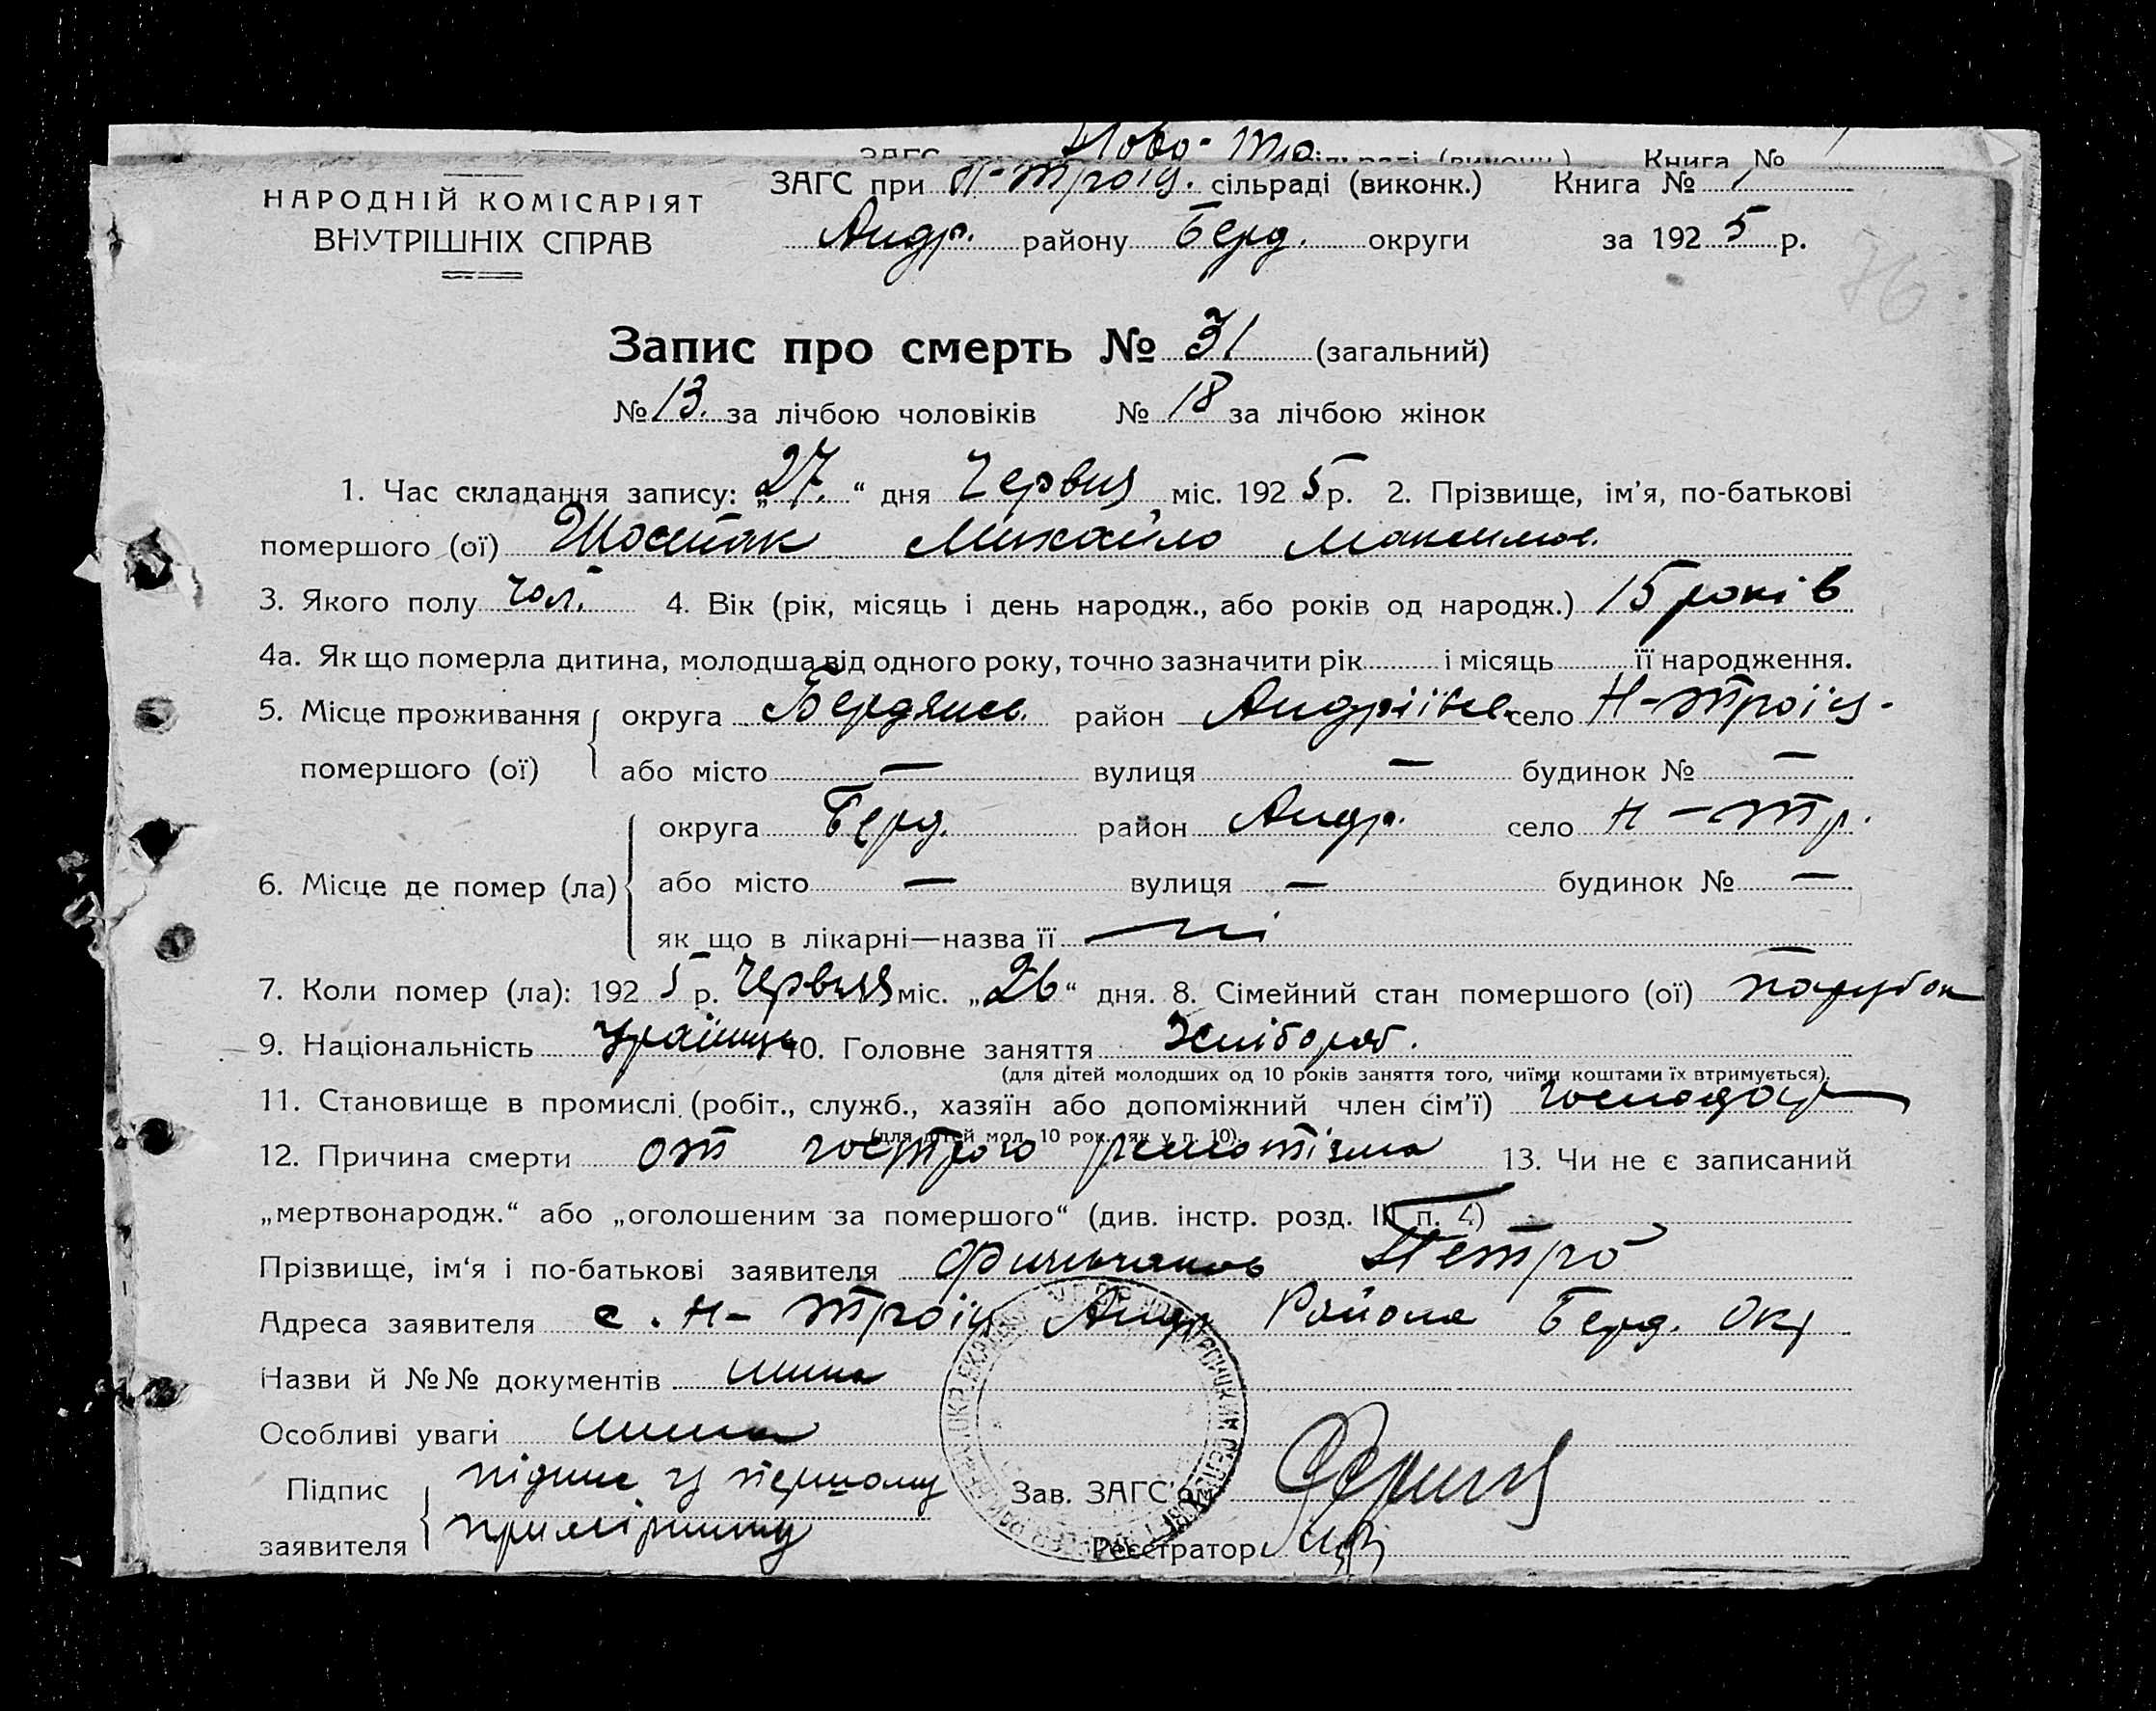 Ново-Тро
ЗАГС сільраді (виконк.) Книга №
НАРОДНІЙ КОМІСАРІЯТ
ВНУТРІШНІХ СПРАВ
ЗАГС при Н-Троїц. сільраді (виконк.) Книга № 1
Андр. району Берд. округи за 1925 р.
76
Запис про смерть № 31 (загальний)
№ 13. за лічбою чоловіків № 18 за лічбою жінок
1. Час складання запису: „27.“ дня Червня міс. 1925 р. 2. Прізвище, ім’я, по-батькові
помершого (ої) Шостак Михайло Максимов.
3. Якого полу чол. 4. Вік (рік, місяць і день народж., або років од народж.) 15 років
4а. Як що померла дитина, молодша від одного року, точно зазначити рік і місяць її народження.
5. Місце проживання округа Бердянс. район Андріївс. село Н-Троїц-
помершого (ої) або місто — вулиця — будинок № —
округа Берд. район Андр. село Н-Тр.
6. Місце де помер (ла) або місто — вулиця — будинок № —
як що в лікарні—назва її ні
7. Коли помер (ла): 1925 р. Червня міс. „26“ дня. 8. Сімейний стан помершого (ої) парубок
9. Національність 10. Головне заняття Хлібороб.
(для дітей молодших од 10 років заняття того, чиїми коштами їх втримується).
11. Становище в промислі (робіт., служб., хазяїн або допоміжний член сім’ї) господар
(для дітей мол. 10 рок. як у п. 10).
12. Причина смерти от гострого ревматізма 13. Чи не є записаний
„мертвонародж.“ або „оголошеним за помершого“ (див. інстр. розд. III п. 4)
Прізвище, ім‘я і по-батькові заявителя Петро
Адреса заявителя с. Н-Троїц Андр Района Берд. Окр
Назви й №№ документів нима
Особливі уваги нима
Підпис підпис у першому
заявителя примірнику
Зав. ЗАГС’ом
Реєстратор